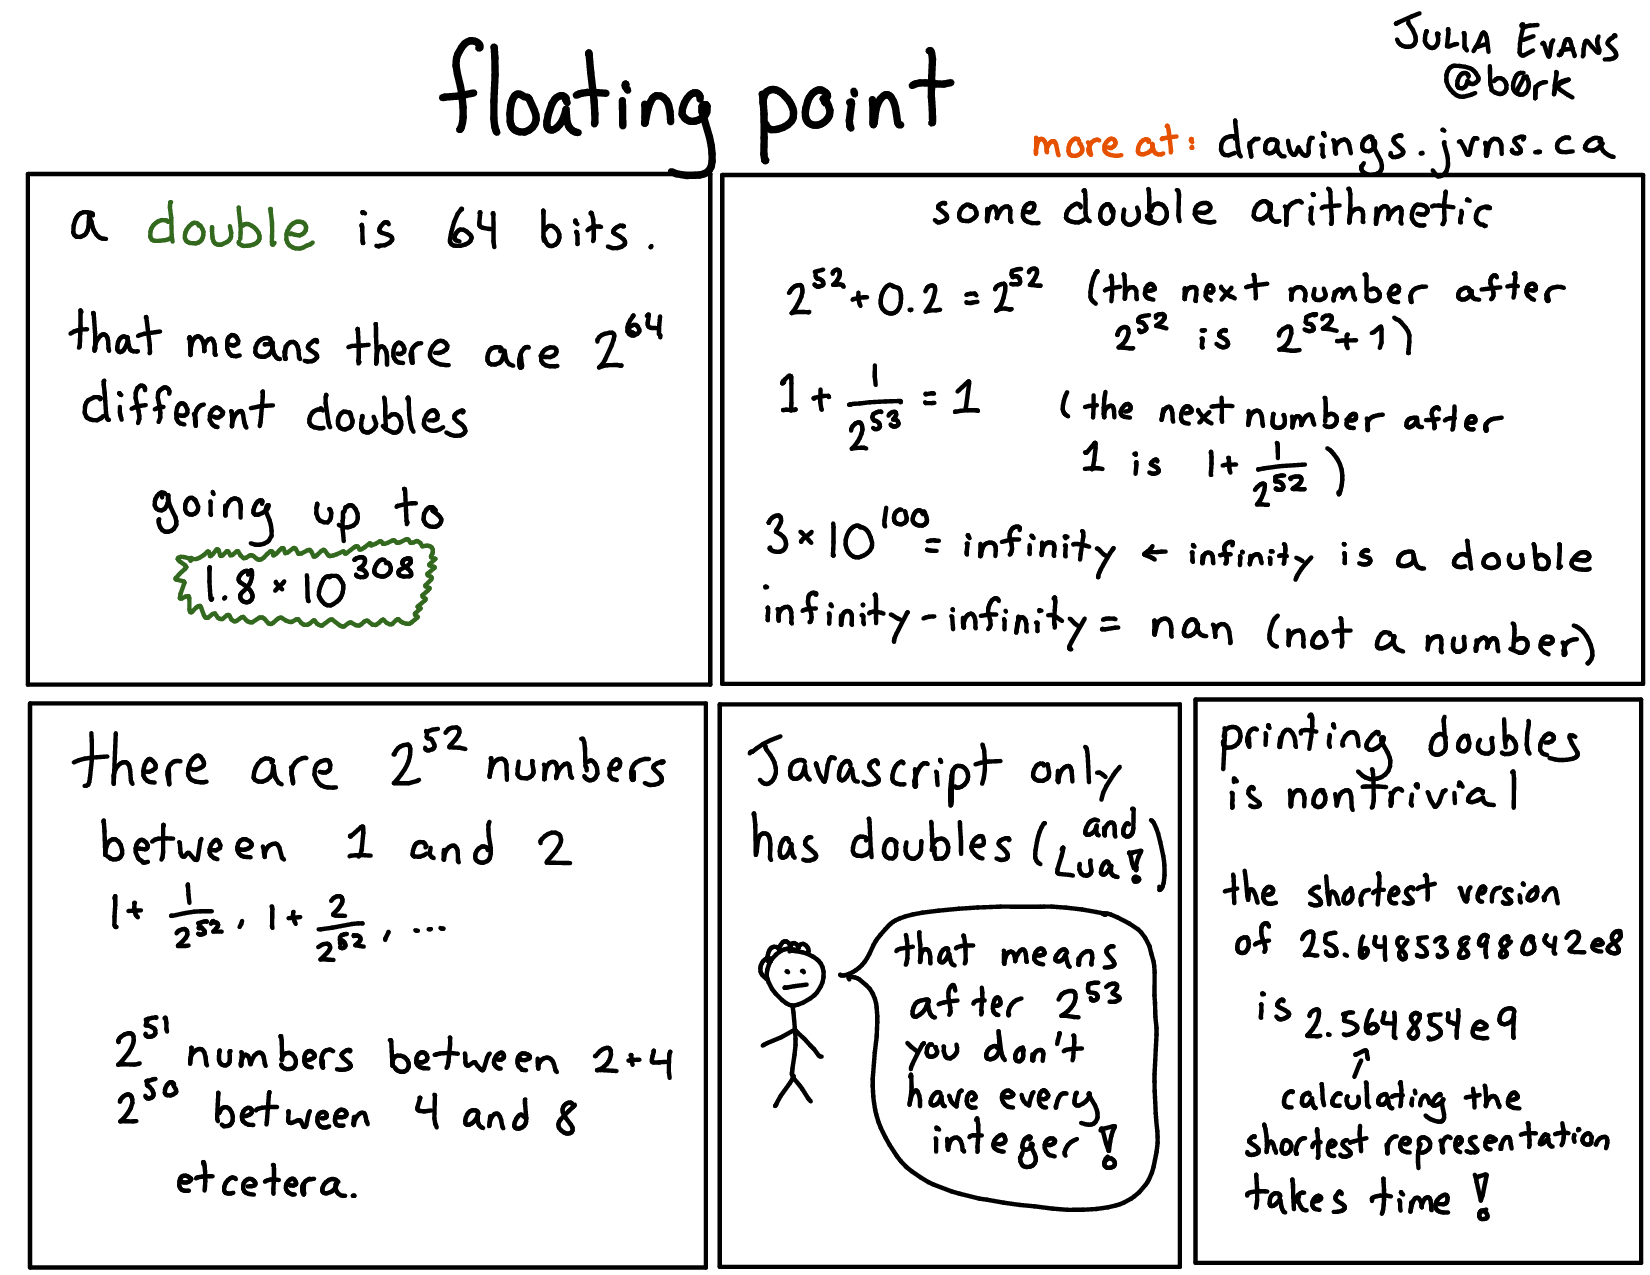 floating point
JULIA EVANS
@b0rk
more at: drawings.jvns.ca
a double is 64 bits.
that means there are 2^64
different doubles
going up to
1.8 × 10^308
some double arithmetic
2^52 + 0.2 = 2^52 (the next number after
2^52 is 2^52 + 1)
1 + 1/2^53 = 1 (the next number after
1 is 1 + 1/2^52)
3 × 10^100 = infinity ← infinity is a double
infinity - infinity = nan (not a number)
there are 2^52 numbers
between 1 and 2
1 + 1/2^52, 1 + 2/2^52, ...
2^51 numbers between 2 + 4
2^50 between 4 and 8
etcetera.
Javascript only
has doubles (and
Lua!)
that means
after 2^53
you don't
have every
integer!
printing doubles
is nontrivial
the shortest version
of 25.64853898042e8
is 2.564854e9
↑
calculating the
shortest representation
takes time!